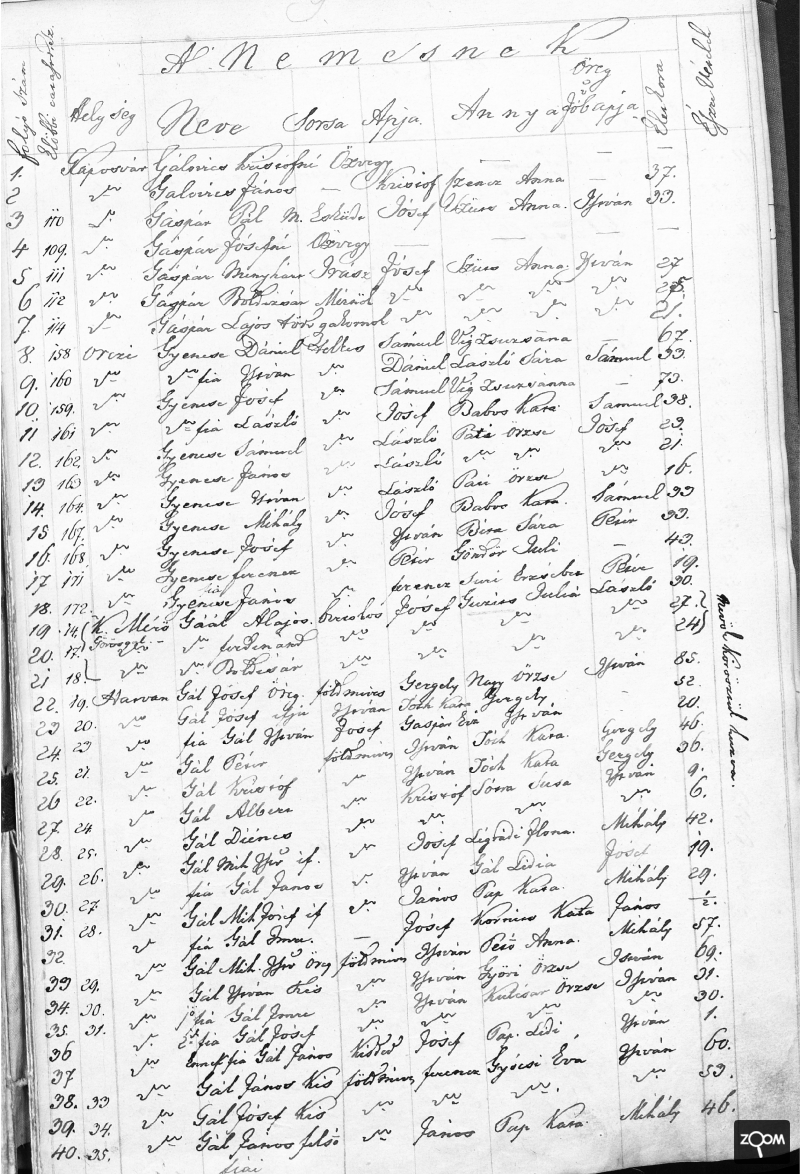 A' Nemesnek
folyó Szám Előbbi Helység Neve Sorsa Apja Annya Öreg Apja Élet kora Észre Vétel
1. Kaposvár Gálovics Kristófné Özvegy — — —
2 " Gálovics János — Kristóf Szencz Anna — 37.
3 110 " Gáspár Pál M. Esküdt Jósef Szüts Anna. István 33.
4 109. " Gáspár Jósefné Özvegy — — — —
5 111 " Gáspár Menyhárt Irász Jósef Szüts Anna. István 27
6 112 " Gáspár Boldizsár Mérnök " " " "
7. 114 " Gáspár Lajos törv. gakornok " " " 21.
8. 158 Orczi Gyenese Dániel Telkes Sámuel Vig Zsuzsánna — 67.
9. 160 " " fia István " Dániel László Sára Sámuel 33.
10. 159. " Gyenese Josef " Sámuel Vig Zsuzsanna — 73.
11 161 " " fia László " Josef Babos Kata. Samuel 38.
12. 162. " Gyenese Sámuel " László Pati Örzse Josef 23.
13 163. " Gyenese János " László " " " 21.
14. 164. " Gyenese István " László Pati Örzse " 16.
15 167. " Gyenese Mihály " Jósef Babos Kata. Sámuel 33
16. 168. " Gyenese Josef " István Bira Sára Péter 33.
17 171 " Gyenese ferencz " Péter Göndör Juli — 43.
18. 172. " fia Gyenese János " ferencz Suri Erzsébet Péter 19.
19 14. K. Mérő Gaál Alajos. Jósef Juliá László 30.
20. 17. " " ferdinánd " " " " 27.
21 18. " " Boldizsár " " " " 24
mind Körösztül huzva.
22. 19. Harvan Gál Josef Öreg. földmives Gergely Nagy Örzse István 85.
23 20. " Gál Josef ifju István Tóth Kata Gergely 52.
24. 23 " fia Gál István Josef Gaspár Eva István 20.
25. 21. " Gál Péter földmives István Tóth Kata. Gergely 46.
26 22. " Gál Kristóf " István Tóth Kata Gergely 36.
27 24 " Gál Albert Kristóf Susa István 9.
28. 25. " Gál Diénes " " " " 6.
29. 26. " Gál Mih. Istv. if. " Josef Légrádi Ilona. Mihály 42.
30. 27 " fia Gál János " István Gál Lidia Josef 19.
31. 28. " Gál Mih. Jósef if " János Pap Kata. Mihály 29.
32. " fia Gál Imre. — Jósef Kornics Kata János ½.
33 29. " Gál Mih. Istv Öreg földmives István Pető Anna. Mihály 57.
34. 30. " Gál István Kis " István Györi Örzse István 69.
35. 31. " 1ő fia Gál Imre " István Kulcsár Örzse István 31.
36 " 2ik fia Gál Josef " " " " 30.
37 " Ennek fia Gál János Kisded Jósef Pap. Lidi István 1.
38. 33 " Gál János Kis földmives ferencz Gyócsi Éva István 60.
39. 34. " Gál Jósef Kis " " " " 53.
40. 35. " Gál János felső " János Pap Kata. Mihály 46.
fiai
ZOOM